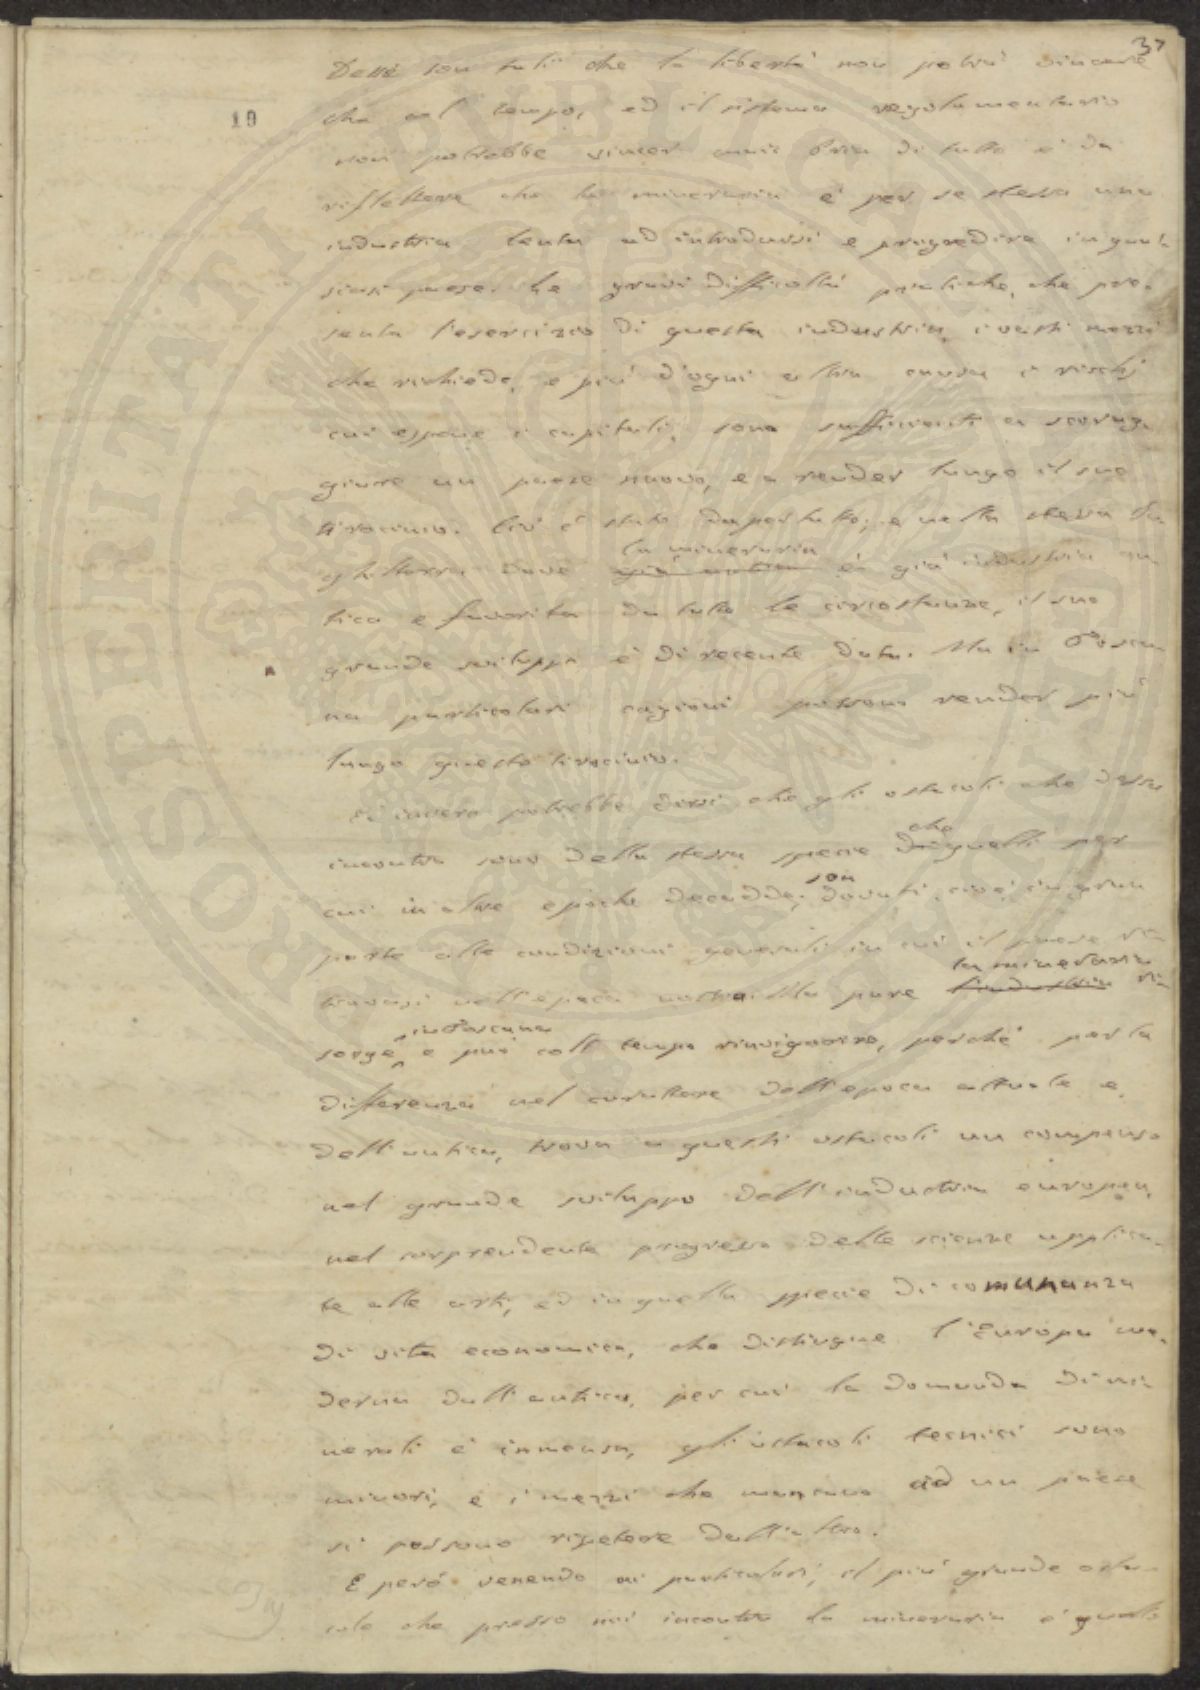 37
19
Dessi son tali che la libertà non potrà vincere
che col tempo, ed il sistema regolamentario
non potrebbe vincer mai. Pria di tutto è da
riflettere che la mineraria è per se stessa una
industria lenta ad introdursi e progredire in qual-
siasi paese. Le gravi difficoltà pratiche, che pre-
senta l'esercizio di questa industria, i vasti mezzi
che richiede, e più d'ogni altra causa i rischj
cui espone i capitali, sono sufficienti a scorag-
giare un paese nuovo, e a render lungo il suo
tirocinio. Ciò è stato dapertutto; e nella stessa In-
ghilterra dove la mineraria è già industria an-
tica e favorita da tutte le circostanze, il suo
grande sviluppo è di recente data. Ma in Tosca-
na particolari cagioni possono render più
lungo questo tirocinio.
Ed invero potrebbe dirsi che gli ostacoli che dessa
incontra sono della stessa specie che quelli per
cui in altre epoche decadde; son dovuti, cioè, in gran
parte alle condizioni generali in cui il paese ri-
trovasi nell'epoca nostra. Ma pure la mineraria ri-
sorge in Toscana, e può coll tempo rinvigorire, perchè per la
differenza nel carattere dell'epoca attuale e
dell'antica, trova a questi ostacoli un compenso
nel grande sviluppo dell'industria europea,
nel sorprendente progresso delle scienze applica-
te alle arti, ed in quella specie di comunanza
di vita economica, che distingue l'Europa mo-
derna dall'antica, per cui la domanda di mi-
nerali è immensa, gli ostacoli tecnici sono
minori, e i mezzi che mancano ad un paese
si possono ripetere dall'altro.
E però venendo ai particolari, il più grande osta-
colo che presso noi incontra la mineraria è quello